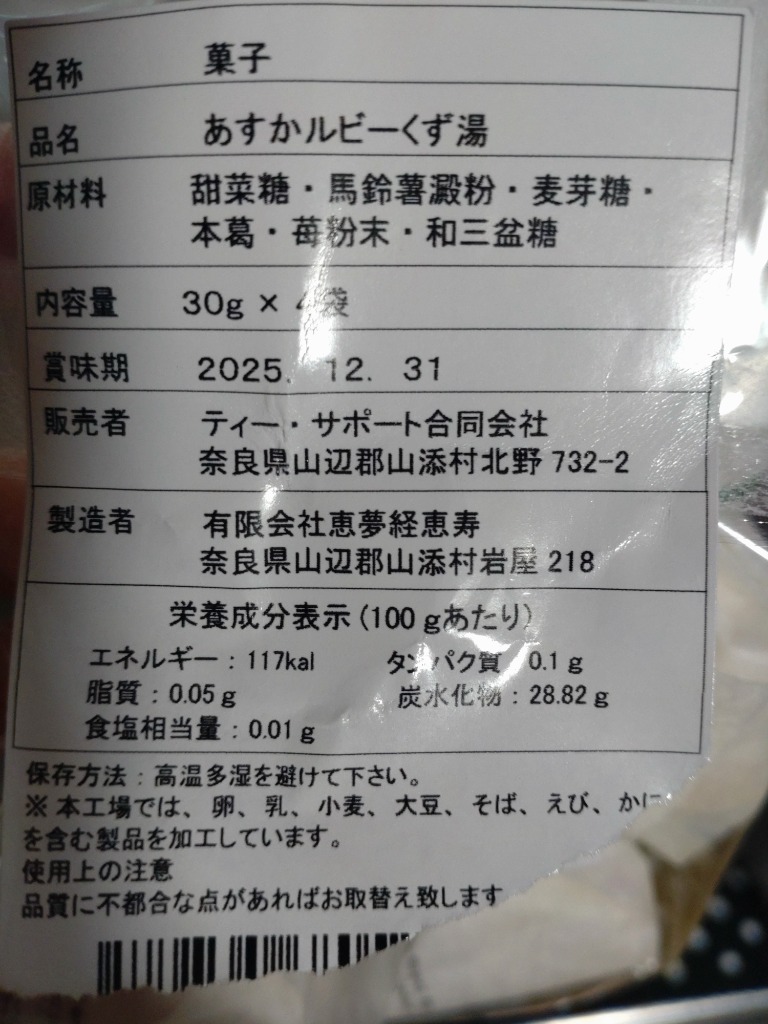 名称 菓子
品名 あすかルビーくず湯
原材料 甜菜糖・馬鈴薯澱粉・麦芽糖・
本葛・苺粉末・和三盆糖
内容量 30g × 4袋
賞味期 2025. 12. 31
販売者 ティー・サポート合同会社
奈良県山辺郡山添村北野 732-2
製造者 有限会社恵夢経恵寿
奈良県山辺郡山添村岩屋 218
栄養成分表示(100gあたり)
エネルギー:117kal タンパク質 0.1g
脂質:0.05g 炭水化物:28.82g
食塩相当量:0.01g
保存方法:高温多湿を避けて下さい。
※本工場では、卵、乳、小麦、大豆、そば、えび、かに
を含む製品を加工しています。
使用上の注意
品質に不都合な点があればお取替え致します